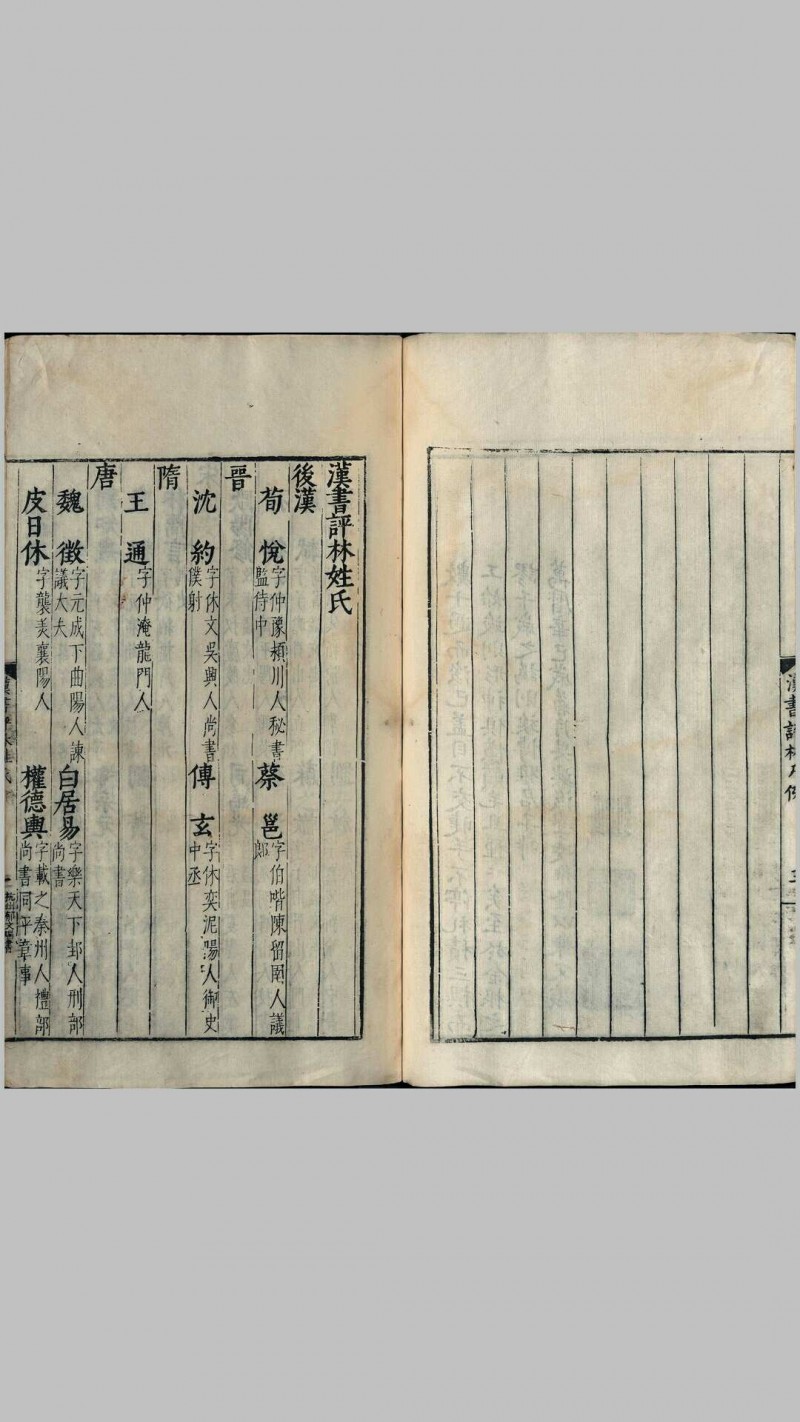 漢書評林姓氏
後漢
荀悅 字仲豫潁川人秘書監侍中 蔡邕 字伯喈陳留圉人議郎
晉
沈約 字休文吳興人尚書僕射 傅玄 字休奕泥陽人御史中丞
隋
王通 字仲淹龍門人
唐
魏徵 字元成下曲陽人諫議大夫 白居易 字樂天下邽人刑部尚書
皮日休 字襲美襄陽人 權德輿 字載之秦州人禮部尚書同平章事